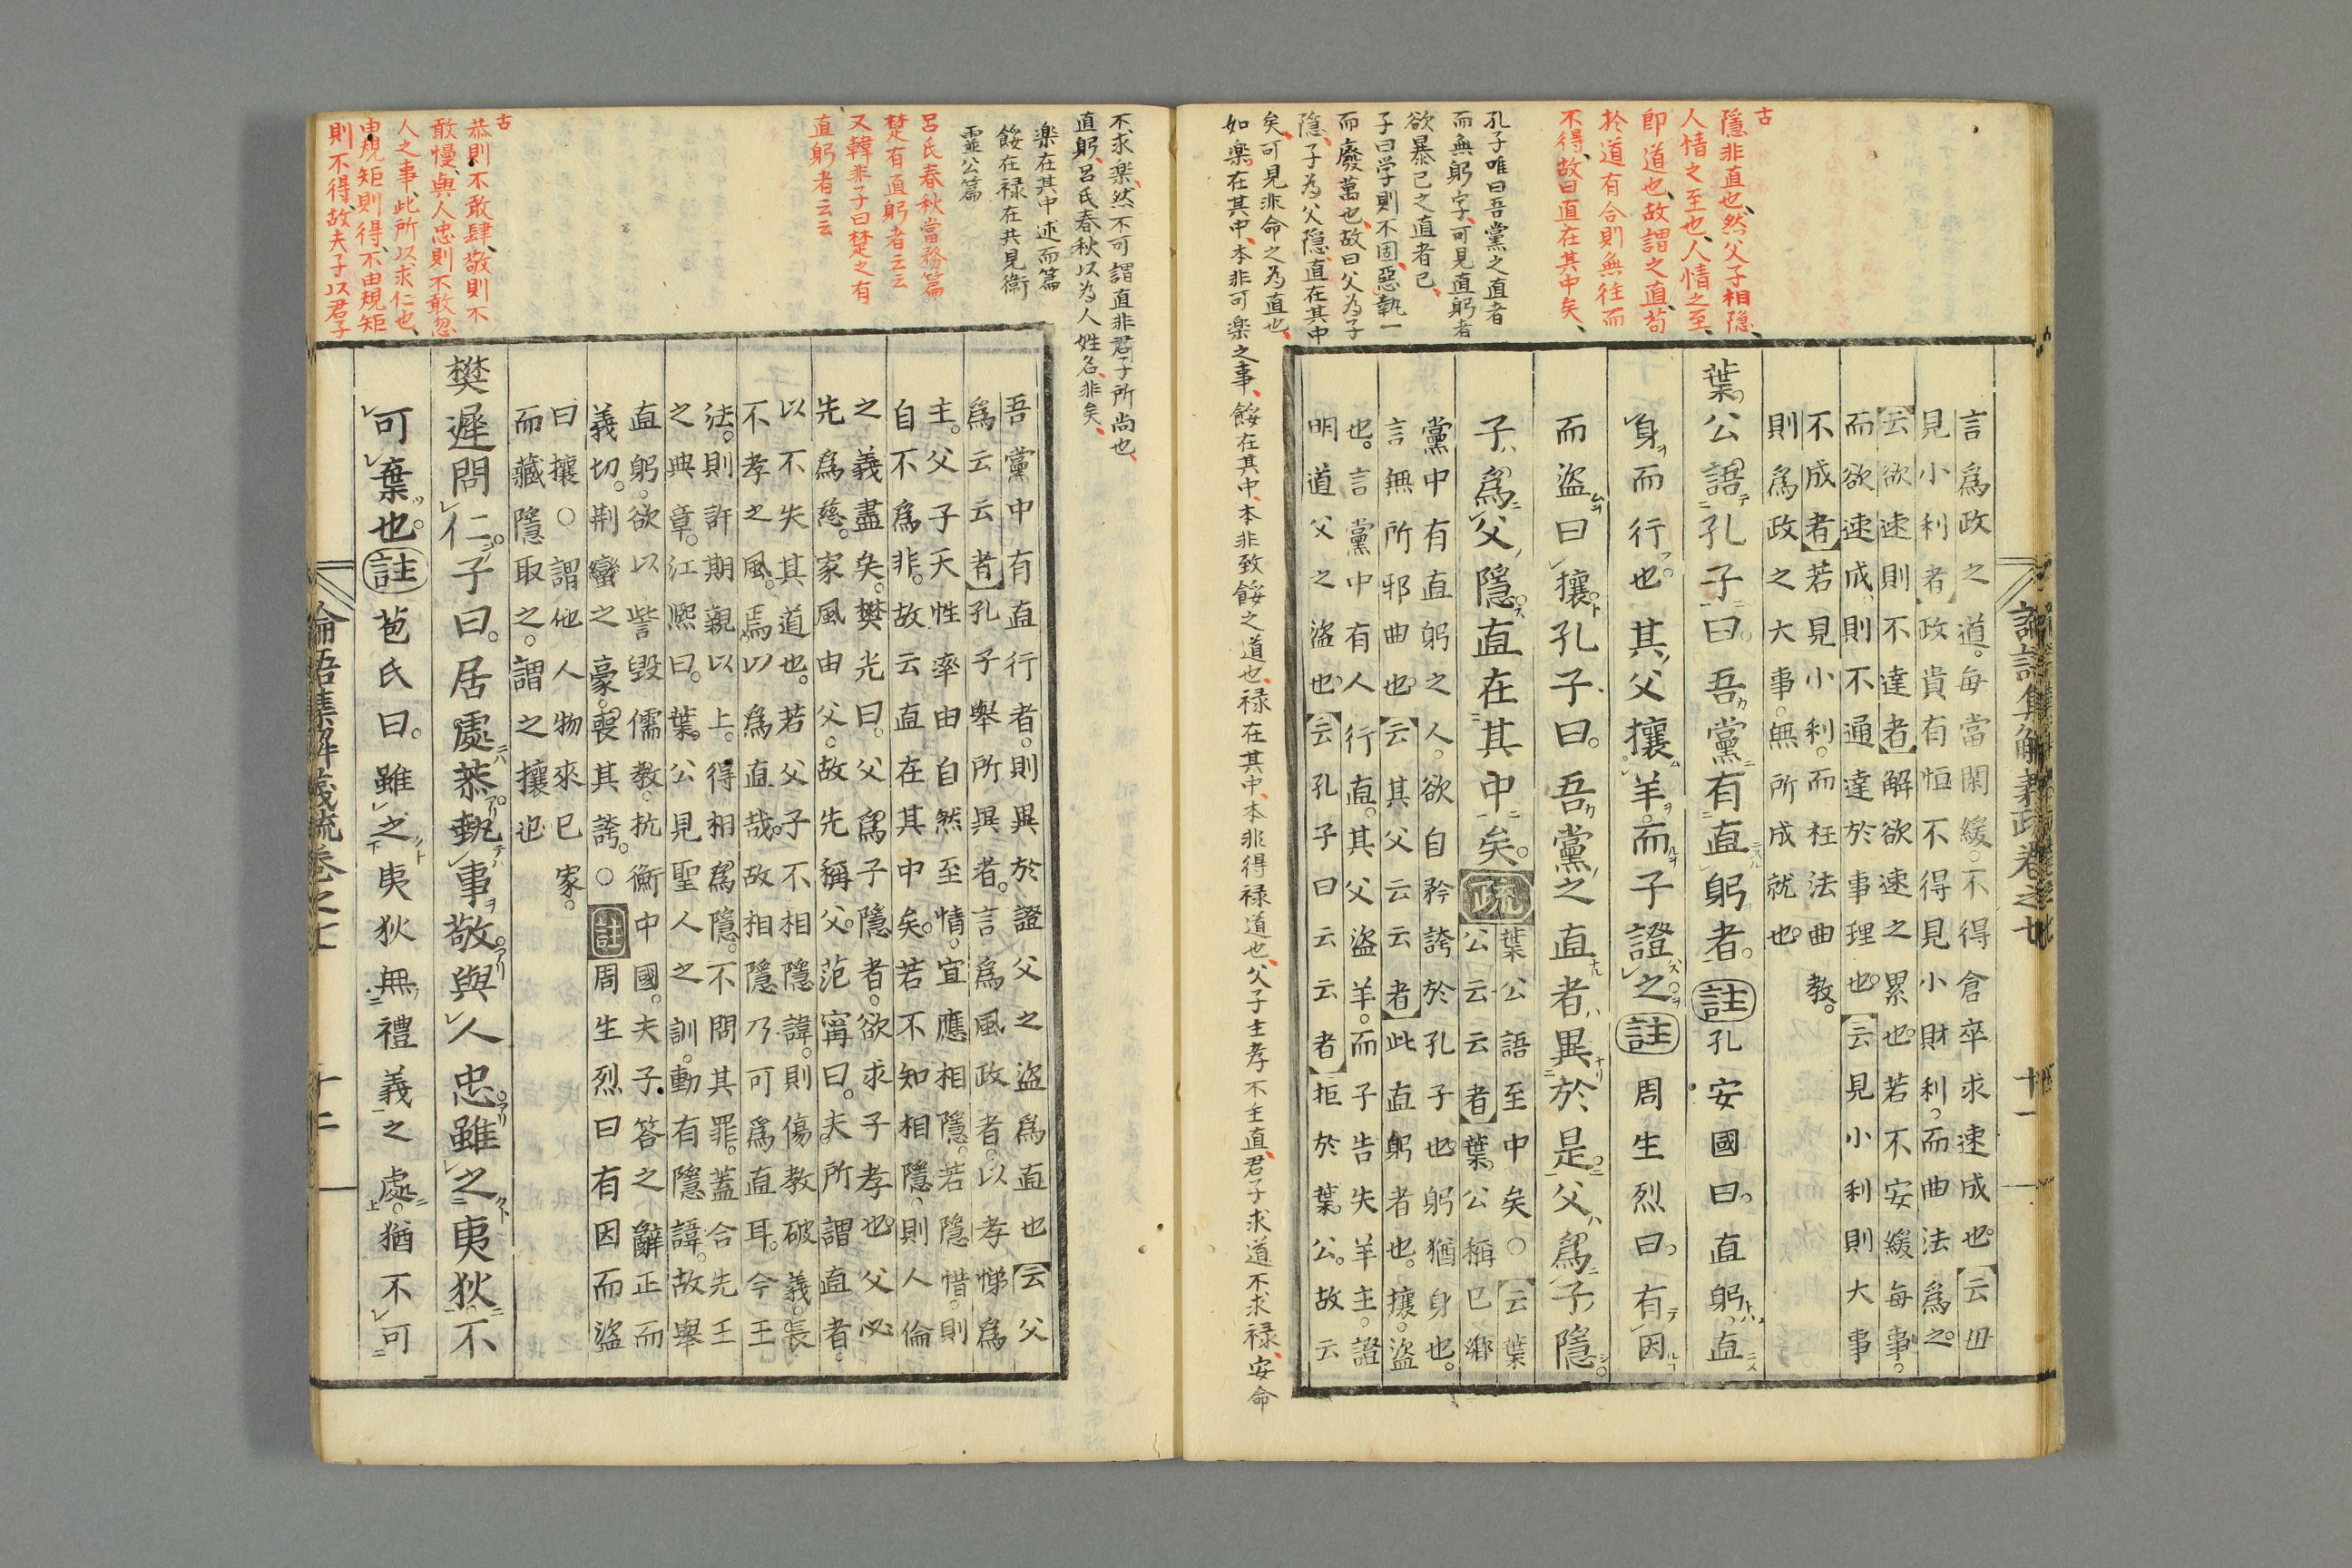 論語集解義疏卷之七 十一
古
隱非直也、然父子相隱、
人情之至也、人情之至、
即道也、故謂之直、苟
於道有合則無往而
不得、故曰直在其中矣、
孔子唯曰吾黨之直者
而無躬字、可見直躬者
欲暴己之直者已、
子曰学則不固、惡執一
而廢萬也、故曰父為子
隱、子為父隱、直在其中
矣、可見非命之為直也、
如楽在其中、本非可楽之事、餒在其中、本非致餒之道也、禄在其中、本非得禄道也、父子主孝不主直、君子求道不求禄、安命
言爲政之道。每當閑緩。不得倉卒求速成也。【云毋
見小利者】政貴有恒不得見小財利。而曲法爲之。
【云欲速則不達者】解欲速之累也。若不安緩每事。
而欲速成。則不通達於事理也。【云見小利則大事
不成者】若見小利。而枉法曲教。
則爲政之大事。無所成就也。
葉公語孔子曰。吾黨有直躬者。註孔安國曰。直躬。直
身而行也。其父攘羊。而子證之註周生烈曰。有因
而盜曰攘孔子曰。吾黨之直者異於是。父爲子隱
子爲父隱直在其中矣。疏葉公語至中矣○【云葉
公云云者】葉公稱已鄕
黨中有直躬之人。欲自矜誇於孔子也。躬猶身也。
言無所邪曲也。【云其父云云者】此直躬者也。攘。盜
也。言黨中有人行直。其父盜羊。而子告失羊主。證
明道父之盜也。【云孔子曰云云者】拒於葉公。故云
不求楽、然不可謂直非君子所尚也、
直躬、呂氏春秋以為人姓名、非矣、
楽在其中述而篇
餒在禄在共見衛
霊公篇
呂氏春秋當務篇
楚有直躬者云云
又韓非子曰楚之有
直躬者云云
古
恭則不敢肆、敬則不
敢慢、與人忠則不敢忽
人之事、此所以求仁也、
由規矩則得、不由規矩
則不得、故夫子以君子
吾黨中有直行者。則異於證父之盜爲直也【云父
爲云云者】孔子舉所異者。言爲風政者。以孝悌爲
主。父子天性率由自然至情。宜應相隱。若隱惜。則
自不爲非。故云直在其中矣。若不知相隱。則人倫
之義盡矣。樊光曰。父爲子隱者。欲求子孝也。父必
先爲慈。家風由父。故先稱父。范甯曰。夫所謂直者。
以不失其道也。若父子不相隱諱。則傷教破義。長
不孝之風。焉以爲直哉。故相隱乃可爲直耳。今王
法。則許期親以上。得相爲隱。不問其罪。蓋合先王
之典章。江熙曰。葉公見聖人之訓。動有隱諱。故舉
直躬。欲以訾毀儒教。抗衡中國。夫子答之辭正而
義切。荆蠻之豪。喪其誇。○註周生烈曰有因而盜
曰攘○謂他人物來已家。
而藏隱取之。謂之攘也
樊遲問仁。子曰。居處恭執事敬。與人忠雖之夷狄不
可棄也。註苞氏曰。雖之夷狄無禮義之處。猶不可
論語集解義疏卷之七 十二